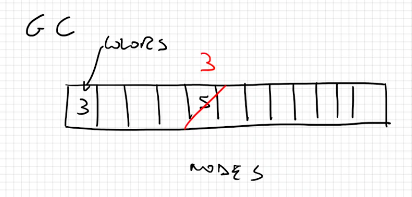 GC
COLORS
3
3 5
NODES